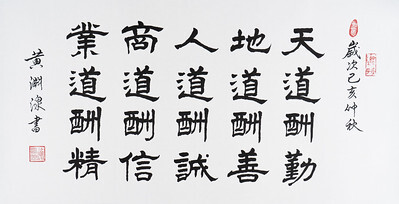 歲次己亥仲秋
天道酬勤
地道酬善
人道酬誠
商道酬信
業道酬精
黃淵湶書